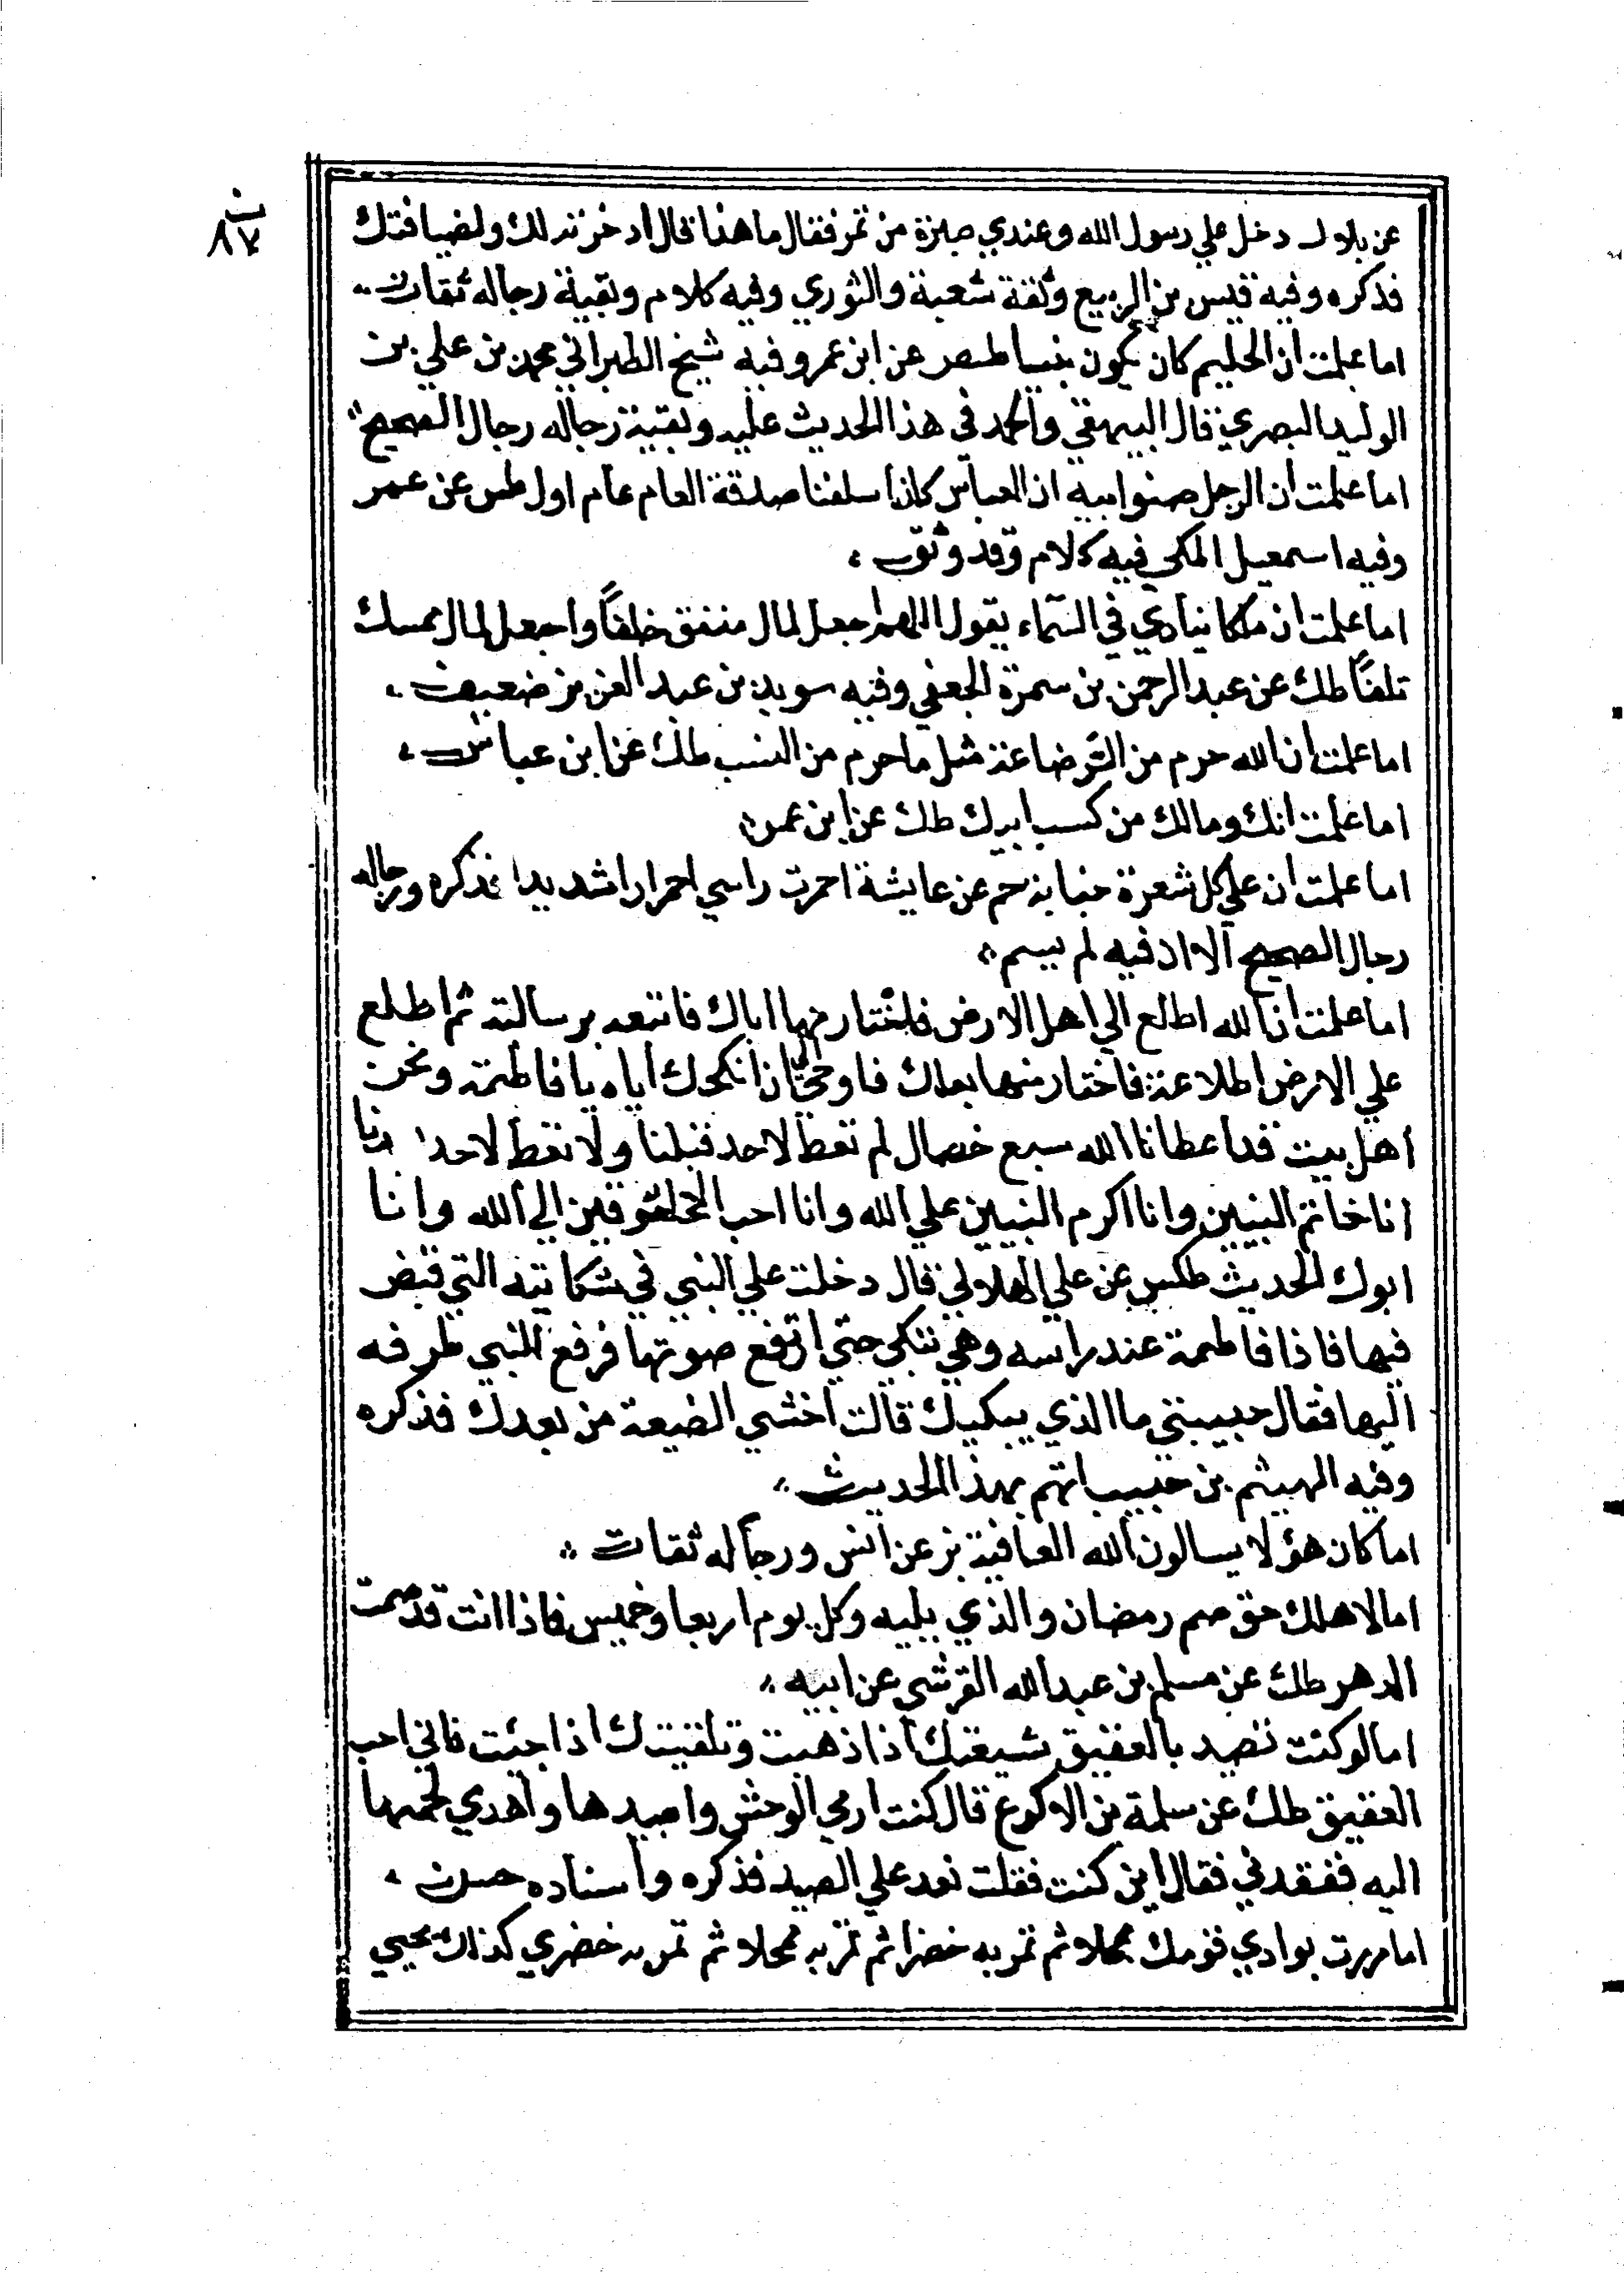 ت
٨٧
عن بلال دخل علي رسول الله وعندي صبرة من تمر فقال ما هذا قال ادخرته لك ولضيافتك
فذكره وفيه قيس بن الربيع وثقة شعبة والثوري وفيه كلام وبقية رجاله ثقات
اما علمت ان الحليم كان يكون نبيا طسص عن ابن عمر وفيه شيخ الطبراني محمد بن علي بن
الوليد البصري قال البيهقي والحمد في هذا الحديث عليه وبقية رجاله رجال الصحيح
اما علمت ان الرجل صنو ابيه ان العباس كان اسلفنا صدقة العام عام اول طس عن عمر
وفيه اسمعيل المكي فيه كلام وقد وثق
اما علمت ان ملكا ينادي في السمآء يقول اللهم اجعل لمال منفق خلفًا واجعل لمال ممسك
تلفًا طك عن عبد الرحمن بن سمرة الجعفي وفيه سويد بن عبد العزيز ضعيف
اما علمت ان الله حرم من الرضاعة مثل ما حرم من النسب طك عن ابن عباس
اما علمت انك ومالك من كسب ابيك طك عن ابن عمر
اما علمت ان علي كل شعرة جنابة حم عن عايشة اجمرت راسي اجمارا شديدا فذكره ورجاله
رجال الصحيح الا ان فيه لم يسم
اما علمت ان الله اطلع الي اهل الارض فاختار منها اباك فابتعثه برسالته ثم اطلع
علي الارض اطلاعة فاختار منها بعلك فاوحي الي ان انكحك اياه يا فاطمة ونحن
اهل بيت قد اعطانا الله سبع خصال لم تعط لاحد قبلنا ولا تعط لاحد
انا خاتم النبيين وانا اكرم النبيين علي الله وانا احب المخلوقين الي الله وانا
ابوك الحديث طكس عن علي الهلالي قال دخلت علي النبي في شكايته التي قبض
فيها فاذا فاطمة عند راسه وهي تبكي حتي ارتفع صوتها فرفع النبي طرفه
اليها فقال حبيبتي ما الذي يبكيك قالت اخشي الضيعة من بعدك فذكره
وفيه الهيثم بن حبيب اتهم بهذا الحديث
اما كان هؤلا يسالون الله العافية بز عن انس ورجاله ثقات
اما لاهلك حق صم رمضان والذي يليه وكل يوم اربعا وخميس فاذا انت قد صمت
الدهر طك عن مسلم بن عبد الله القرشي عن ابيه
اما لو كنت تصيد بالعقيق شيعتك اذا ذهبت وتلقيتك اذا جئت فاني احب
العقيق طك عن سلمة بن الاكوع قال كنت ارمي الوحش واصيدها واهدي لحمها
اليه ففقدني فقال اين كنت فقلت نعد علي الصيد فذكره واسناده حسن
اما مررت بوادي قومك ممحلا ثم تمر به خضرا ثم تمر به ممحلا ثم تمر به خضري كذلك يحيي